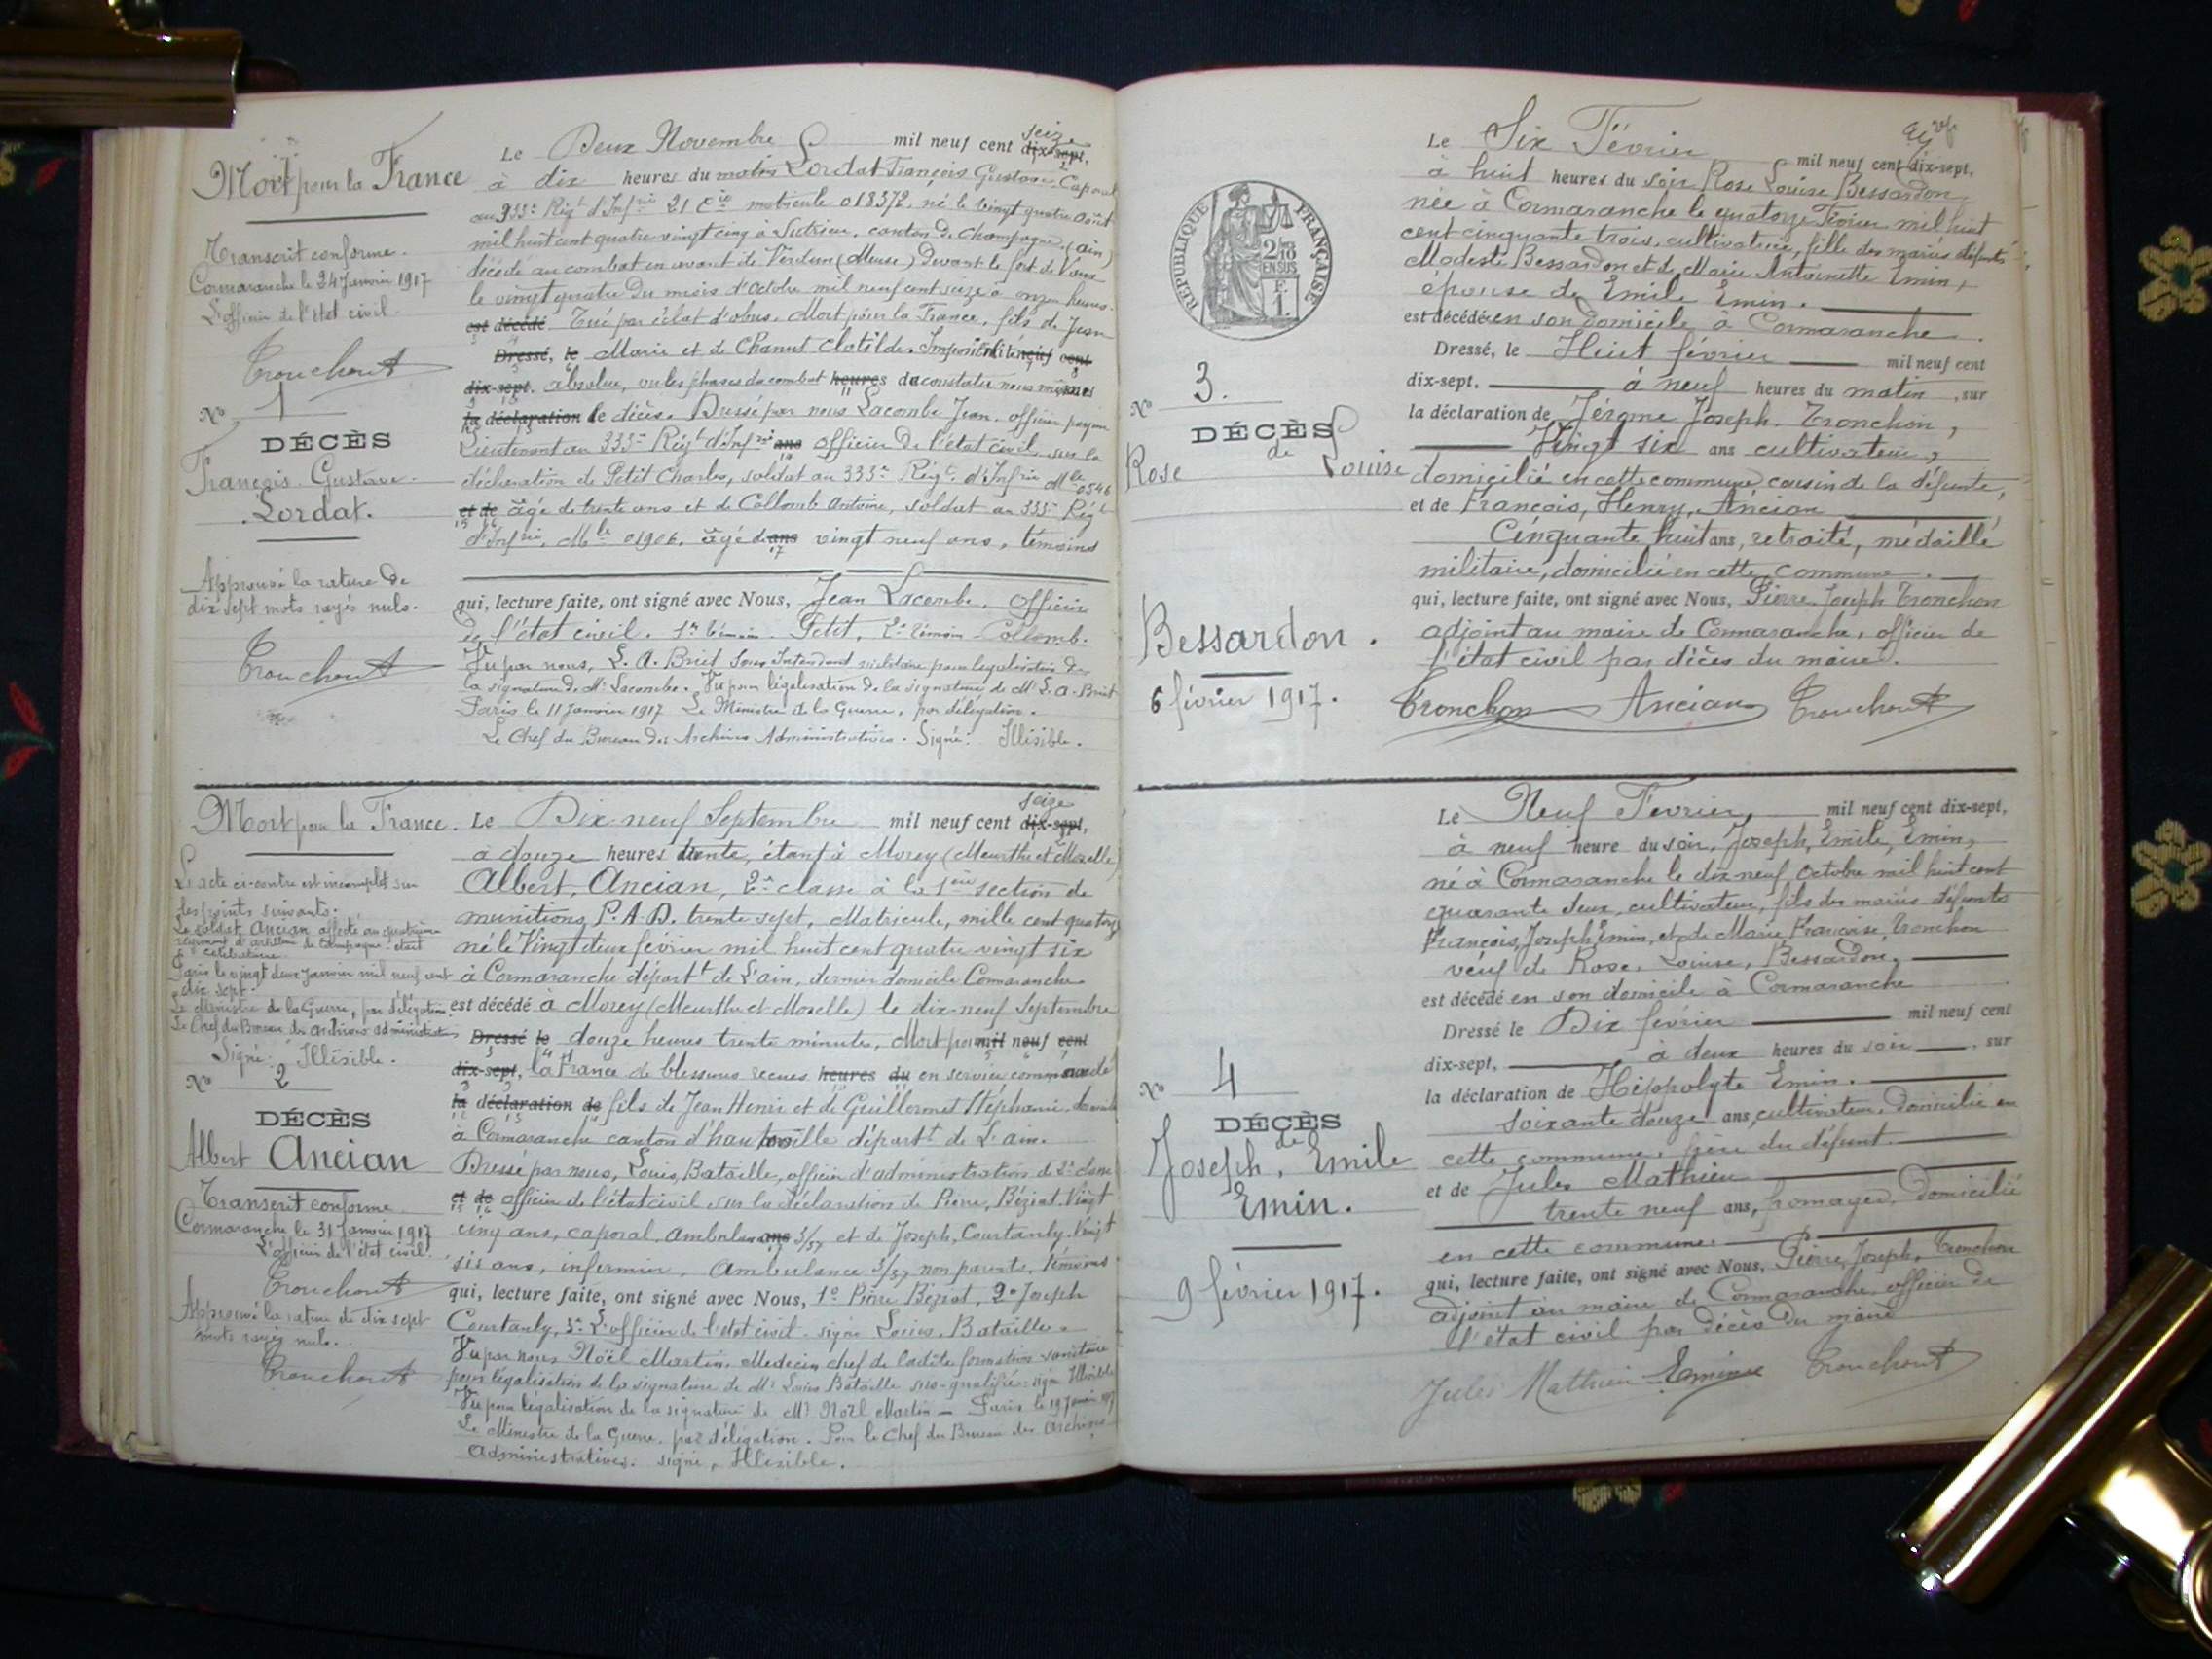 Mort pour la France
Transcrit conforme.
Cormaranche le 24 Janvier 1917
L'officier de l'état civil.
Tronchon
No 1
DÉCÈS
François Gustave
Lordat.
Approuvé la rature de
dix sept mots rayés nuls.
Tronchon
Le Deux Novembre mil neuf cent dix-sept, seize
à dix heures du matin Lordat François Gustave, Caporal
au 333e Régt d'Infrie 21 Cie matricule 018372, né le vingt quatre août
mil huit cent quatre-vingt cinq à Sutrieu, canton de Champagne (ain)
décédé au combat en avant de Verdun (Meuse) Devant le fort de Vaux
le vingt quatre du mois d'octobre mil neuf cent seize à onze heures.
est décédé Tué par éclat d'obus. Mort pour la France, fils de Jean
Dressé, le Marie et de Chanut Clotilde. Impossibilité mil neuf cent
dix-sept. absolue, vu les phases du combat heures du constater nous mêmes
la déclaration le décès. Dressé par nous Lacombe Jean, officier payeur
Lieutenant au 333e Régt d'Infrie ans officier de l'état civil, sur la
déclaration de Petit Charles, soldat au 333e Régt d'Infrie Mle 0546
et de âgé de trente ans et de Collomb Antoine, soldat au 333e Régt
d'Infrie, Mle 01906, âgé de ans vingt neuf ans, témoins
qui, lecture faite, ont signé avec Nous, Jean Lacombe, Officier
de l'état civil. 1er témoin Petit, 2e témoin Collomb.
Vu par nous, L. A. Briet Sous Intendant militaire pour légalisation de
la signature de Mr Lacombe. Vu pour légalisation de la signature de Mr L. A. Briet
Paris le 11 Janvier 1917 Le Ministre de la Guerre, par délégation.
Le Chef du Bureau des Archives Administratives. Signé: Illisible.
Mort pour la France.
L'acte ci-contre est incomplet sur
les points suivants:
Le soldat Ancian affecté au quatrième
régiment d'artillerie de campagne était
célibataire
Paris le vingt deux Janvier mil neuf cent
dix sept.
Le Ministre de la Guerre, par délégation
Le Chef du Bureau des archives administratives
Signé: Illisible.
No 2
DÉCÈS
Albert Ancian
Transcrit conforme
Cormaranche le 31 Janvier 1917
L'officier de l'état civil.
Tronchon
Approuvé la rature de dix sept
mots rayés nuls.
Tronchon
Le Dix-neuf Septembre mil neuf cent dix-sept, seize
à douze heures trente, étant à Morey (Meurthe et Moselle)
Albert, Ancian, 2e classe à la 1ère section de
munitions, P.A.D. trente sept, Matricule, mille cent quatorze
né le Vingt deux février mil huit cent quatre vingt six
à Cormaranche départt de L'ain, dernier domicile Cormaranche
est décédé à Morey (Meurthe et Moselle) le dix-neuf Septembre
Dressé le douze heures trente minutes, Mort pour mil neuf cent
dix-sept, la France de blessures reçues heures du en service commandé
la déclaration de fils de Jean Henri et de Guillermet Stéphanie, domicilié
à Cormaranche canton d'hauteville départt de L'ain.
Dressé par nous, Louis, Bataille, officier d'administration de 2e classe
et de officier de l'état civil sur la déclaration de Pierre, Béziat, Vingt
cinq ans, caporal, ambulance ans 3/37 et de Joseph, Courtanly, Vingt
six ans, infirmier, Ambulance 3/37 non parents, témoins
qui, lecture faite, ont signé avec Nous, 1o Pierre Béziat, 2o Joseph
Courtanly, 3o L'officier de l'état civil signé Louis, Bataille.
Vu par nous Noël Martin, Médecin chef de ladite formation sanitaire
pour légalisation de la signature de Mr Louis Bataille sus-qualifié signé Illisible
Vu pour légalisation de la signature de Mr Noël Martin – Paris le 19 Janvier 1917
Le Ministre de la Guerre, par délégation. Pour le Chef du Bureau des Archives
Administratives. signé, Illisible.
REPUBLIQUE FRANÇAISE
2/10
EN SUS
F.
1.
No 3.
DÉCÈS
de
Rose Louise
Bessardon.
6 février 1917.
Le Six Février mil neuf cent dix-sept,
à huit heures du soir Rose Louise Bessardon,
née à Cormaranche le quatorze Février mil huit
cent cinquante trois, cultivatrice, fille des mariés défunts
Modeste Bessardon et de Marie Antoinette Emin,
épouse de Emile Emin.
est décédée en son domicile à Cormaranche.
Dressé, le Huit février mil neuf cent
dix-sept. à neuf heures du matin, sur
la déclaration de Jérome Joseph Tronchon,
Vingt six ans cultivateur,
domicilié en cette commune cousin de la défunte,
et de François, Henry, Ancian
Cinquante huit ans, retraité, médaillé
militaire, domicilié en cette commune.
qui, lecture faite, ont signé avec Nous, Pierre Joseph Tronchon
adjoint au maire de Cormaranche, officier de
l'état civil par décès du maire.
Tronchon Ancian Tronchon
No 4
DÉCÈS
de
Joseph, Emile
Emin.
9 février 1917.
Le Neuf Février, mil neuf cent dix-sept,
à neuf heure du soir, Joseph, Emile, Emin,
né à Cormaranche le dix neuf Octobre mil huit cent
quarante deux, cultivateur, fils des mariés défunts
François, Joseph Emin, et de Marie Françoise, Tronchon
veuf de Rose, Louise, Bessardon,
est décédé en son domicile à Cormaranche
Dressé le Dix février mil neuf cent
dix-sept, à deux heures du soir, sur
la déclaration de Hippolyte Emin.
Soixante douze ans, cultivateur, Domicilié en
cette commune, frère du défunt.
et de Jules Mathieu
trente neuf ans, fromager, Domicilié
en cette commune.
qui, lecture faite, ont signé avec Nous, Pierre, Joseph, Tronchon
adjoint au maire de Cormaranche, officier de
l'état civil par décès du maire
Jules Mathieu Emin Tronchon